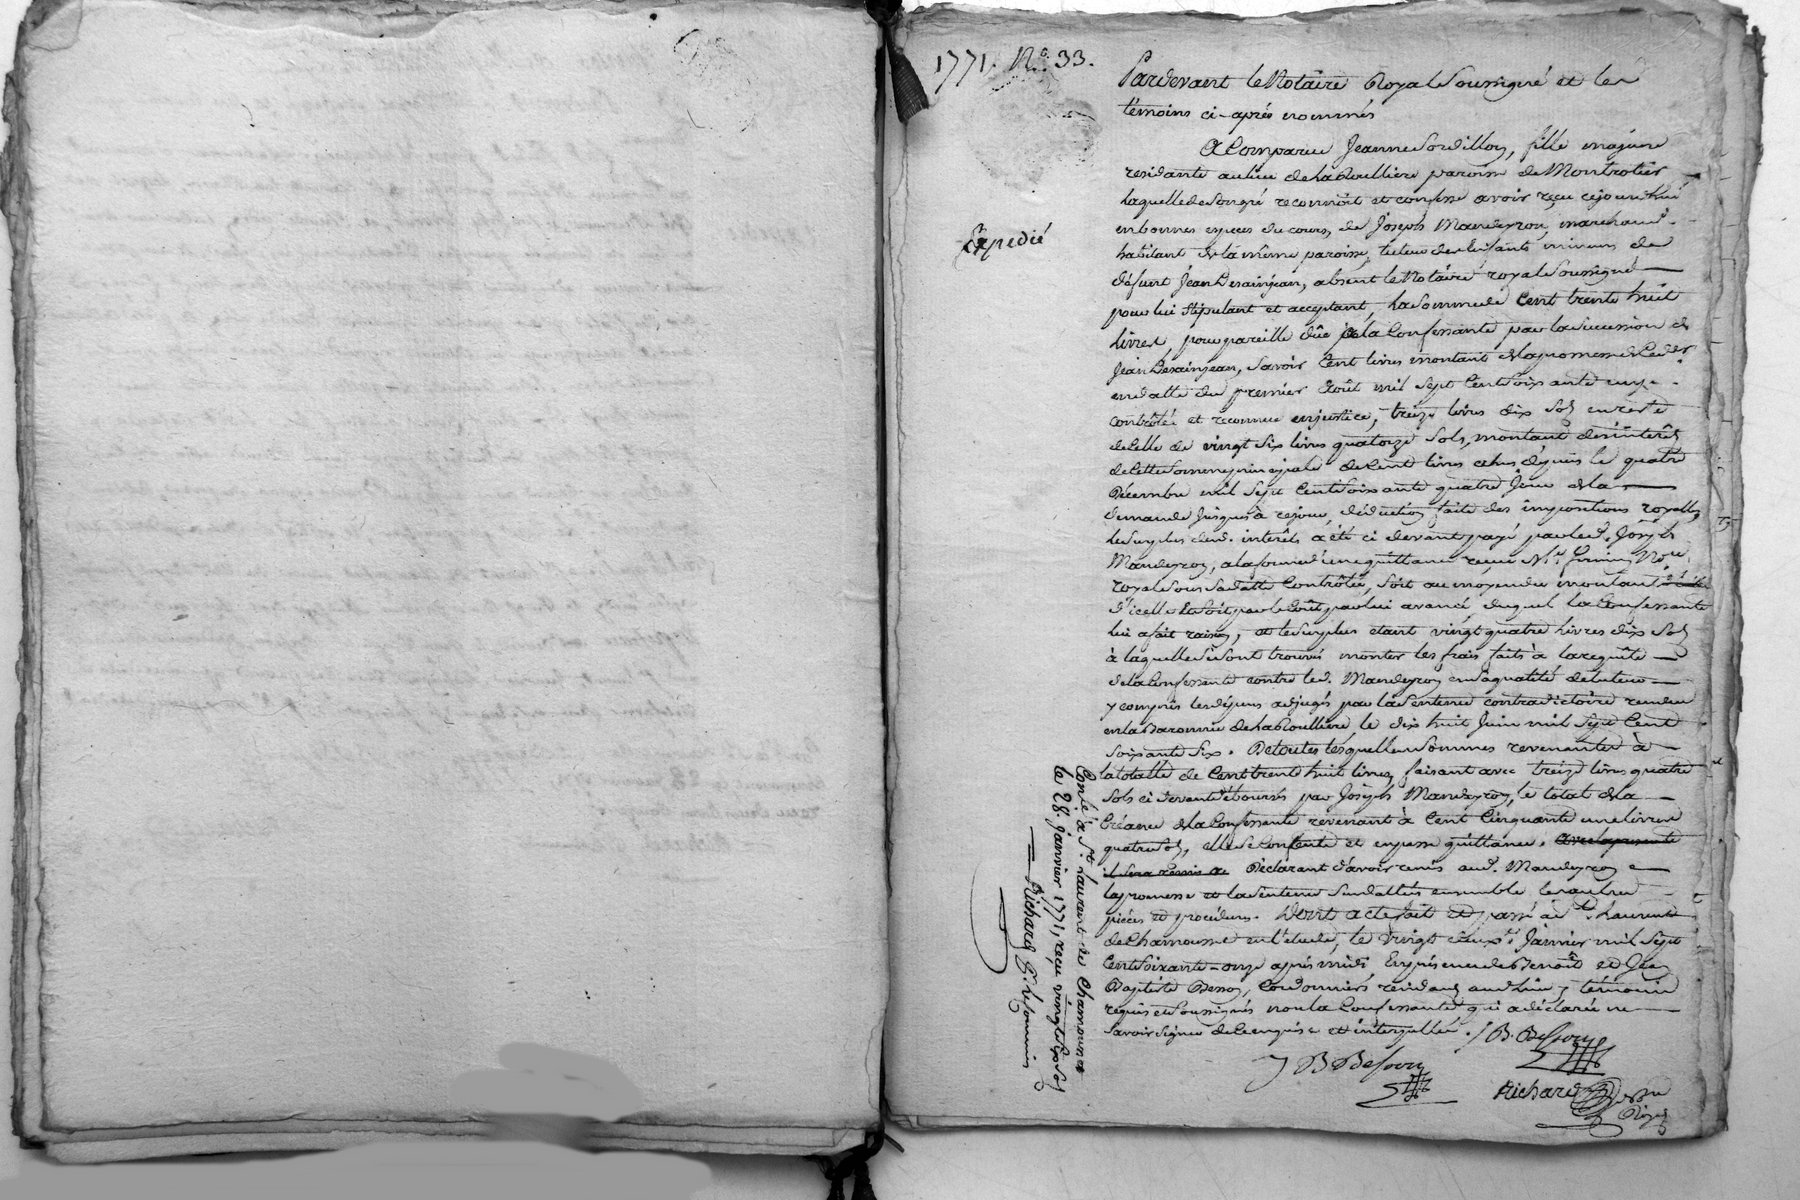 1771. N.° 33.
Pardevant le Notaire Royal Soussigné et les
témoins ci-après nommés
A Comparue Jeanne Sordillon, fille majeure
residante au lieu de la Roulliere paroisse de Montrotier
Laquelle de Son gré reconnoit et confesse avoir reçu cejourd'hui
en bonnes especes du cours, de Joseph Mandeyron, marchand
habitant de la même paroisse, tuteur des Enfants mineurs de
Expedié
défunt Jean Desainjean, absent le Notaire royal Soussigné
pour lui stipulant et acceptant, La Somme de Cent trente huit
livres pour pareille düe à la Confessante par la Succession de
Jean Desainjean, Savoir Cent livres montant de la promesse de ce der.er
en datte du premier Août mil Sept Cent Soixante
contrôlée et reconnue en justice, treize livres dix Sols en reste
de celle de vingt Six livres quatorze Sols, montant des interêts
de cette Somme principale de Cent livres echus depuis le quatre
Décembre mil Sept Cent Soixante quatre jour de la
demande jusques à ce jour, déduction faite des impositions royalles,
le Surplus desd. interêts a été ci devant payé par led. Joseph
Mandeyron, a la forme d'une quittance reçue M.e No.re
royal Sous Sa datte Contrôlée, Soit au moyen du montant
d'icelle et Soit par le Coût par lui avancé duquel la Confessante
lui a fait raison, et le Surplus etant vingt quatre livres dix Sols
à laquelle Se Sont trouvés monter les frais faits à la requête
de la Confessante contre led. Mandeyron en Sa qualité de tuteur
y compris les dépens adjugés par la Sentence contradictoire rendue
en la Baronnie de la Roulliere le dix huit Juin mil Sept Cent
Soixante Six. De toutes lesquelles Sommes revenantes à
la totalle de Cent trente huit livres, faisant avec treize livres quatre
Sols ci devant déboursés par Joseph Mandeyron, le total de la
Créance de la Confessante revenant à Cent Cinquante une livres
quatre Sols, elle Se Contente et en passe quittance. avec la presente
il sera remis Déclarant d'avoir remis aud. Mandeyron
la promesse et la Sentence Susdattés ensemble les autres
piéces et procédures. Dont acte fait et passé à S.t Laurent
de Chamousset en l'etude, le vingt deux.e Janvier mil Sept
Cent Soixante-onze après midi En présence de Benoît et Jean
Baptiste Besson, Cordonniers residants aud. Lieu, témoins
requis et Soussignés non la Confessante qui a déclaré ne
Savoir Signer de ce enquise et interpellée. B. Besson
J B Besson
Richard
Conlé à S.t Laurent de Chamousset
le 28. janvier 1771, reçu vingt Six Sols
Richard P.r le Commis